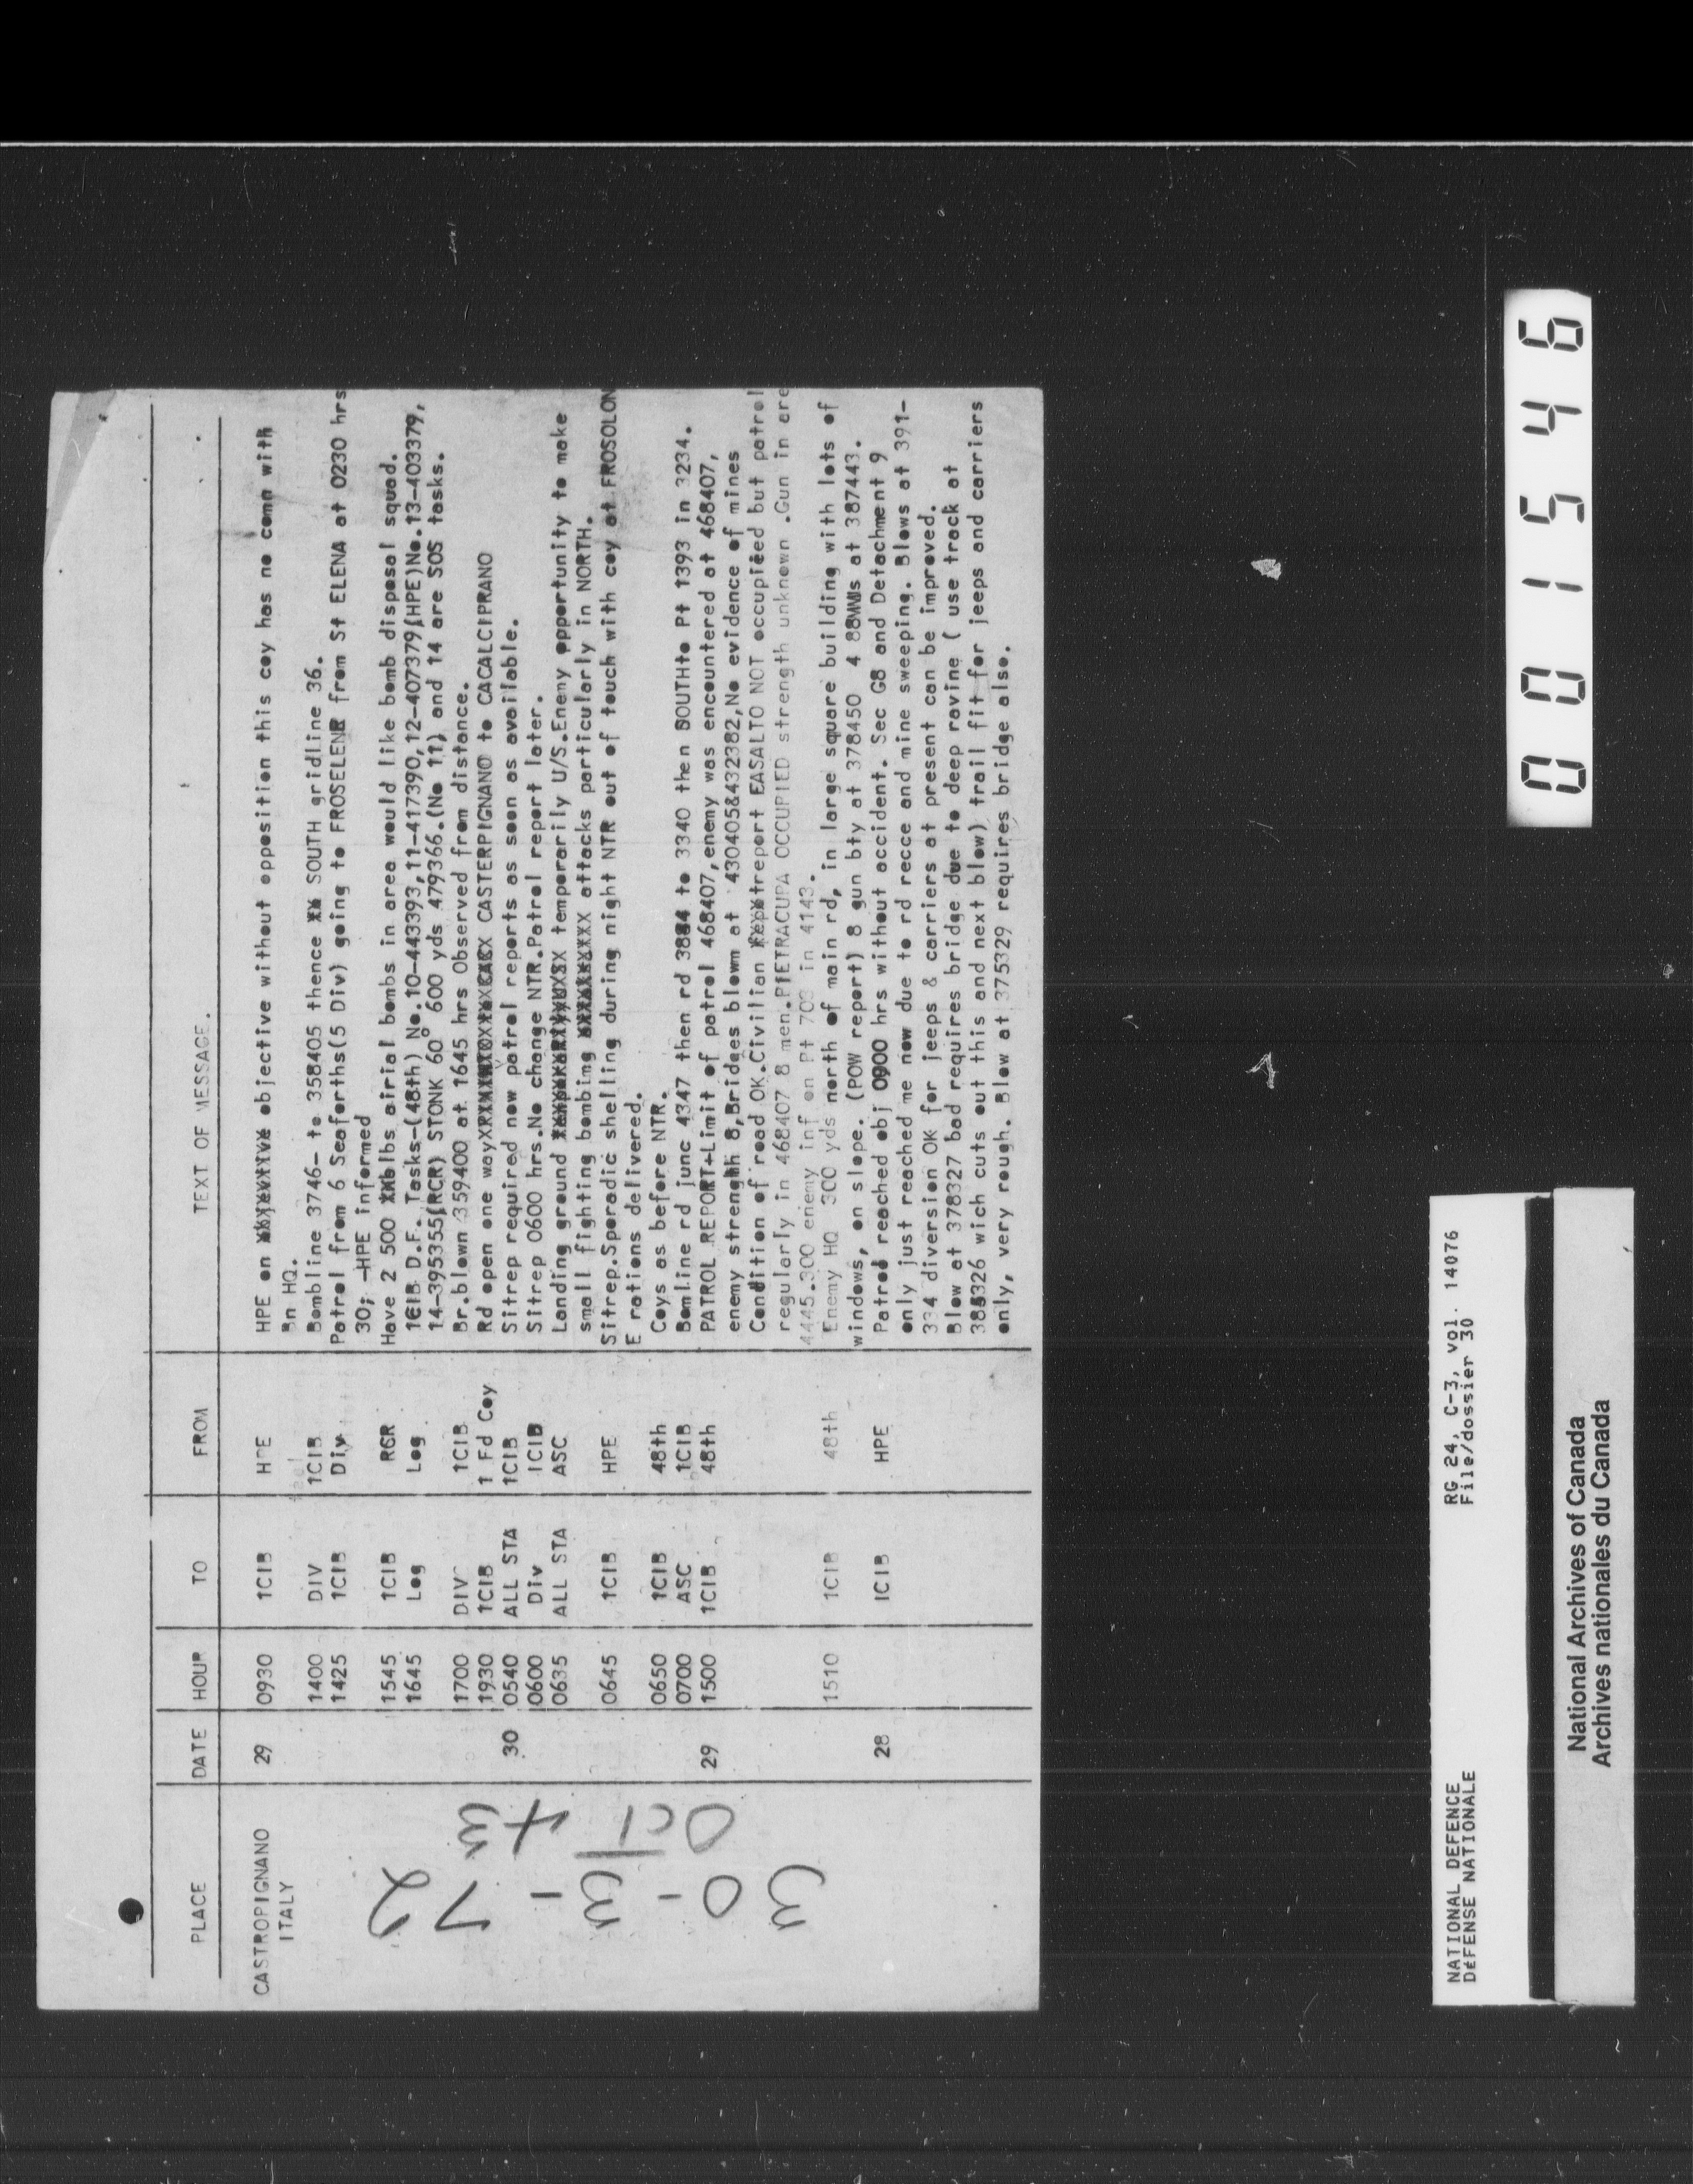 PLACE DATE HOUR TO FROM TEXT OF MESSAGE.
CASTROPIGNANO 29 0930 1CIB HPE HPE on objective without opposition this coy has no comn with
ITALY Bn HQ.
1400 DIV 1CIB Bombline 3746- to 358405 thence SOUTH gridline 36.
1425 1CIB Div Patrol from 6 Seaforths(5 Div) going to FROSELENE from St ELENA at 0230 hrs
30; -HPE informed
1545 1CIB RCR Have 2 500 lbs airial bombs in area would like bomb disposal squad.
1645 Log Log 1CIB D.F. Tasks-(48th) No.10-443393,11-417390,12-407379(HPE)No.13-403379,
14-395355(RCR) STONK 60° 600 yds 479366.(No 11) and 14 are SOS tasks.
1700 DIV 1CIB Br.blown 359400 at 1645 hrs Observed from distance.
1930 1CIB 1 Fd Coy Rd open one way CASTERPIGNANO to CACALCIPRANO
30 0540 ALL STA 1CIB Sitrep required now patrol reports as soon as available.
0600 Div 1CIB Sitrep 0600 hrs.No change NTR.Patrol report later.
0635 ALL STA ASC Landing ground temporarily U/S.Enemy opportunity to make
small fighting bombing attacks particularly in NORTH.
0645 1CIB HPE Sitrep.Sporadic shelling during night NTR out of touch with coy at FROSOLON
E rations delivered.
0650 1CIB 48th Coys as before NTR.
0700 ASC 1CIB Bomline rd junc 4347 then rd 3884 to 3340 then SOUTHto Pt 1393 in 3234.
29 1500 1CIB 48th PATROL REPORT+Limit of patrol 468407,enemy was encountered at 468407,
enemy strength 8,Bridges blown at 430405&432382,No evidence of mines
Condition of road OK.Civilian report EASALTO NOT occupieed but patrol
regularly in 468407 8 men.PIETRACUPA OCCUPIED strength unknown .Gun in are
4445.300 enemy inf on Pt 703 in 4143.
1510 1CIB 48th Enemy HQ 300 yds north of main rd, in large square building with lots of
windows, on slope. (POW report) 8 gun bty at 378450 4 88MMs at 387443.
28 1CIB HPE Patrol reached obj 0900 hrs without accident. Sec G8 and Detachment 9
only just reached me now due to rd recce and mine sweeping. Blows at 391-
334 diversion OK for jeeps & carriers at present can be improved.
Blow at 378327 bad requires bridge due to deep ravine ( use track at
385326 wich cuts out this and next blow) trail fit for jeeps and carriers
only, very rough. Blow at 375329 requires bridge also.
30-3-72
Oct 43
001546
NATIONAL DEFENCE RG 24, C-3, vol. 14076
DÉFENSE NATIONALE File/dossier 30
National Archives of Canada
Archives nationales du Canada